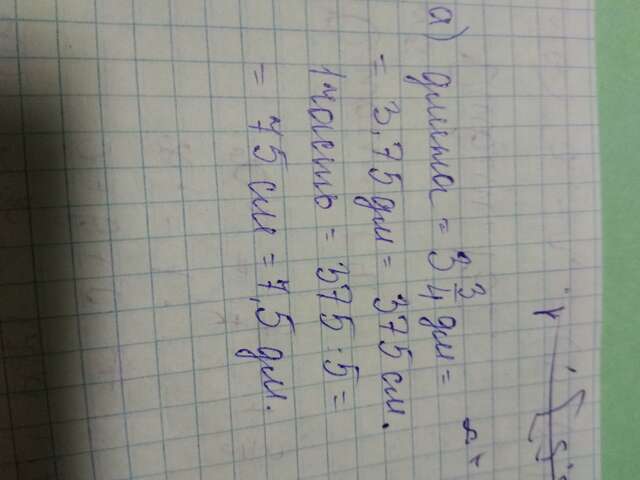 а) длина = 3 3/4 дм =
= 3,75 дм = 375 см.
1 часть = 375 : 5 =
= 75 см = 7,5 дм.